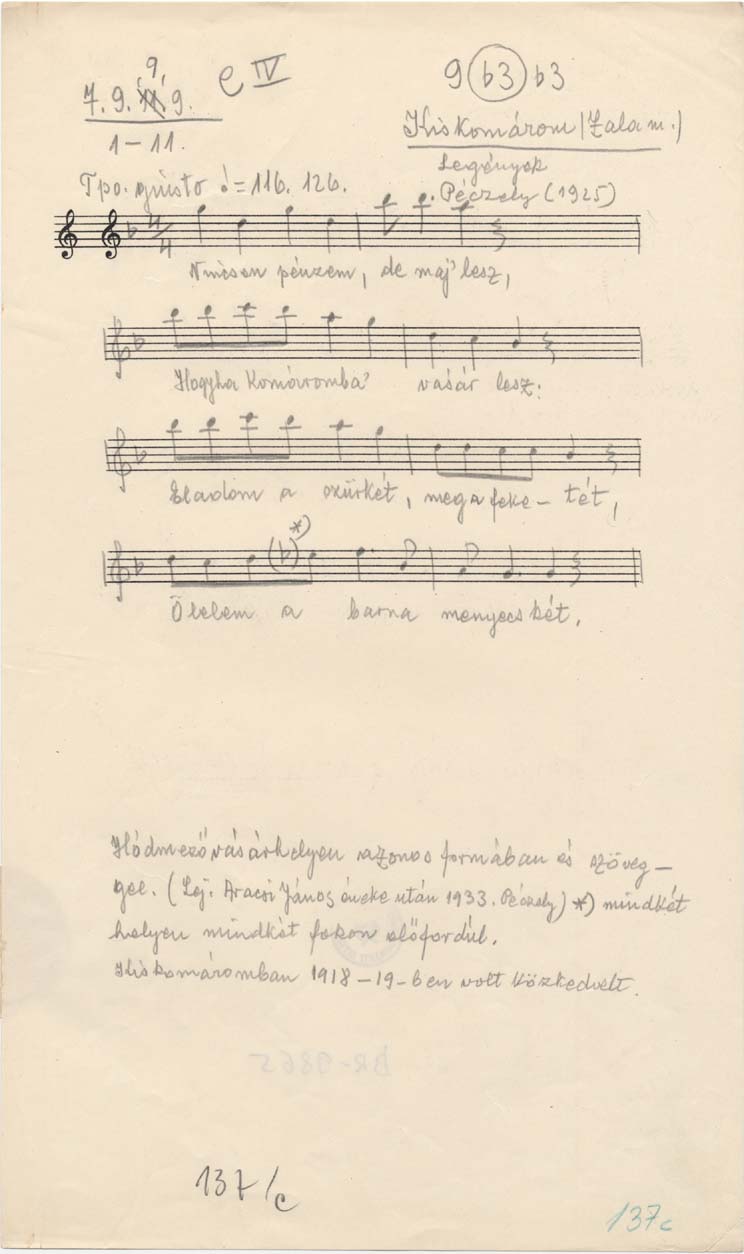 9
7. 9. 11. 9.
e IV
9 b3 b3
1-11.
Kiskomárom (Zala m.)
Legények
Tpo. giusto ♩= 116. 126.
Péczely (1925)
4/4
Nincsen pénzem, de maj' lesz,
Hogyha Komáromba' vásár lesz:
Eladom a szürkét, meg a feke- tét,
*)
(b)
Ölelem a barna menyecskét.
Hódmezővásárhelyen azonos formában és szöveg-
gel. (Lej: Aracsi János éneke után 1933. Péczely) *) mindkét
helyen mindkét fokon előfordúl.
Kiskomáromban 1918-19-ben volt közkedvelt.
BR-0865
137/c
137c